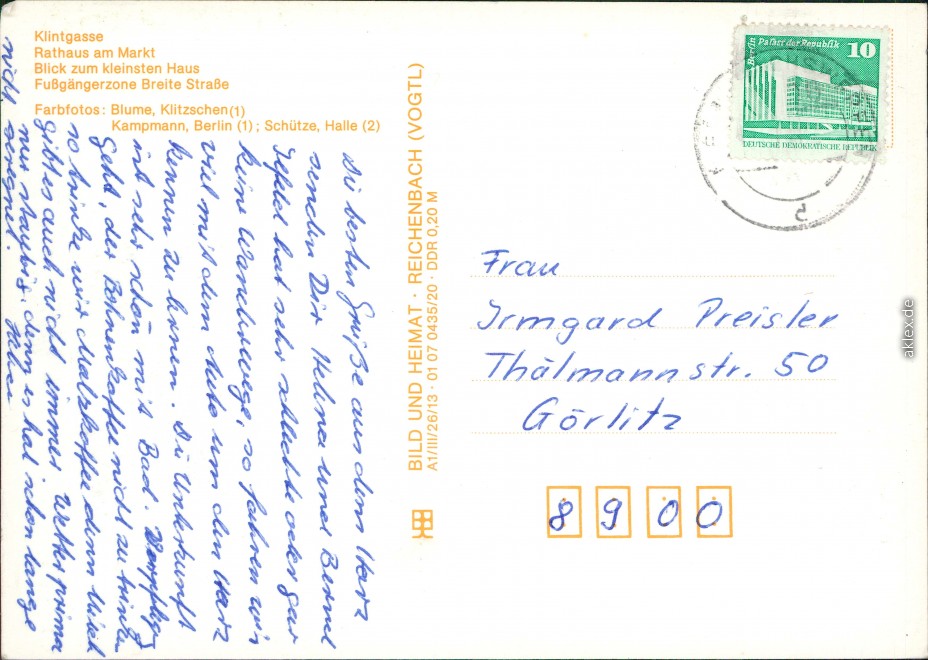 Klintgasse
Rathaus am Markt
Blick zum kleinsten Haus
Fußgängerzone Breite Straße
Farbfotos: Blume, Klitzschen (1)
Kampmann, Berlin (1); Schütze, Halle (2)
Die besten Grüße aus dem Harz
senden Dir Helma und Bernd
Ilfeld hat sehr schlechte oder gar
keine Wanderwege, so fahren wir
viel mit dem Auto um den Harz
kennen zu lernen. Die Unterkunft
ist sehr schön mit Bad.
Geht, der Bohnenkaffee nicht zu trinken
so trinke wir Malzkaffee denn Milch
gibt es auch nicht immer. Wetter prima
nur staubig denn es hat schon lange
nicht geregnet.
BILD UND HEIMAT · REICHENBACH (VOGTL)
A1/III/26/13 · 01 07 0435/20 · DDR 0,20 M
Berlin Palast der Republik 10
DEUTSCHE DEMOKRATISCHE REPUBLIK
Frau
Irmgard Preisler
Thälmannstr. 50
Görlitz
8900
aklex.de